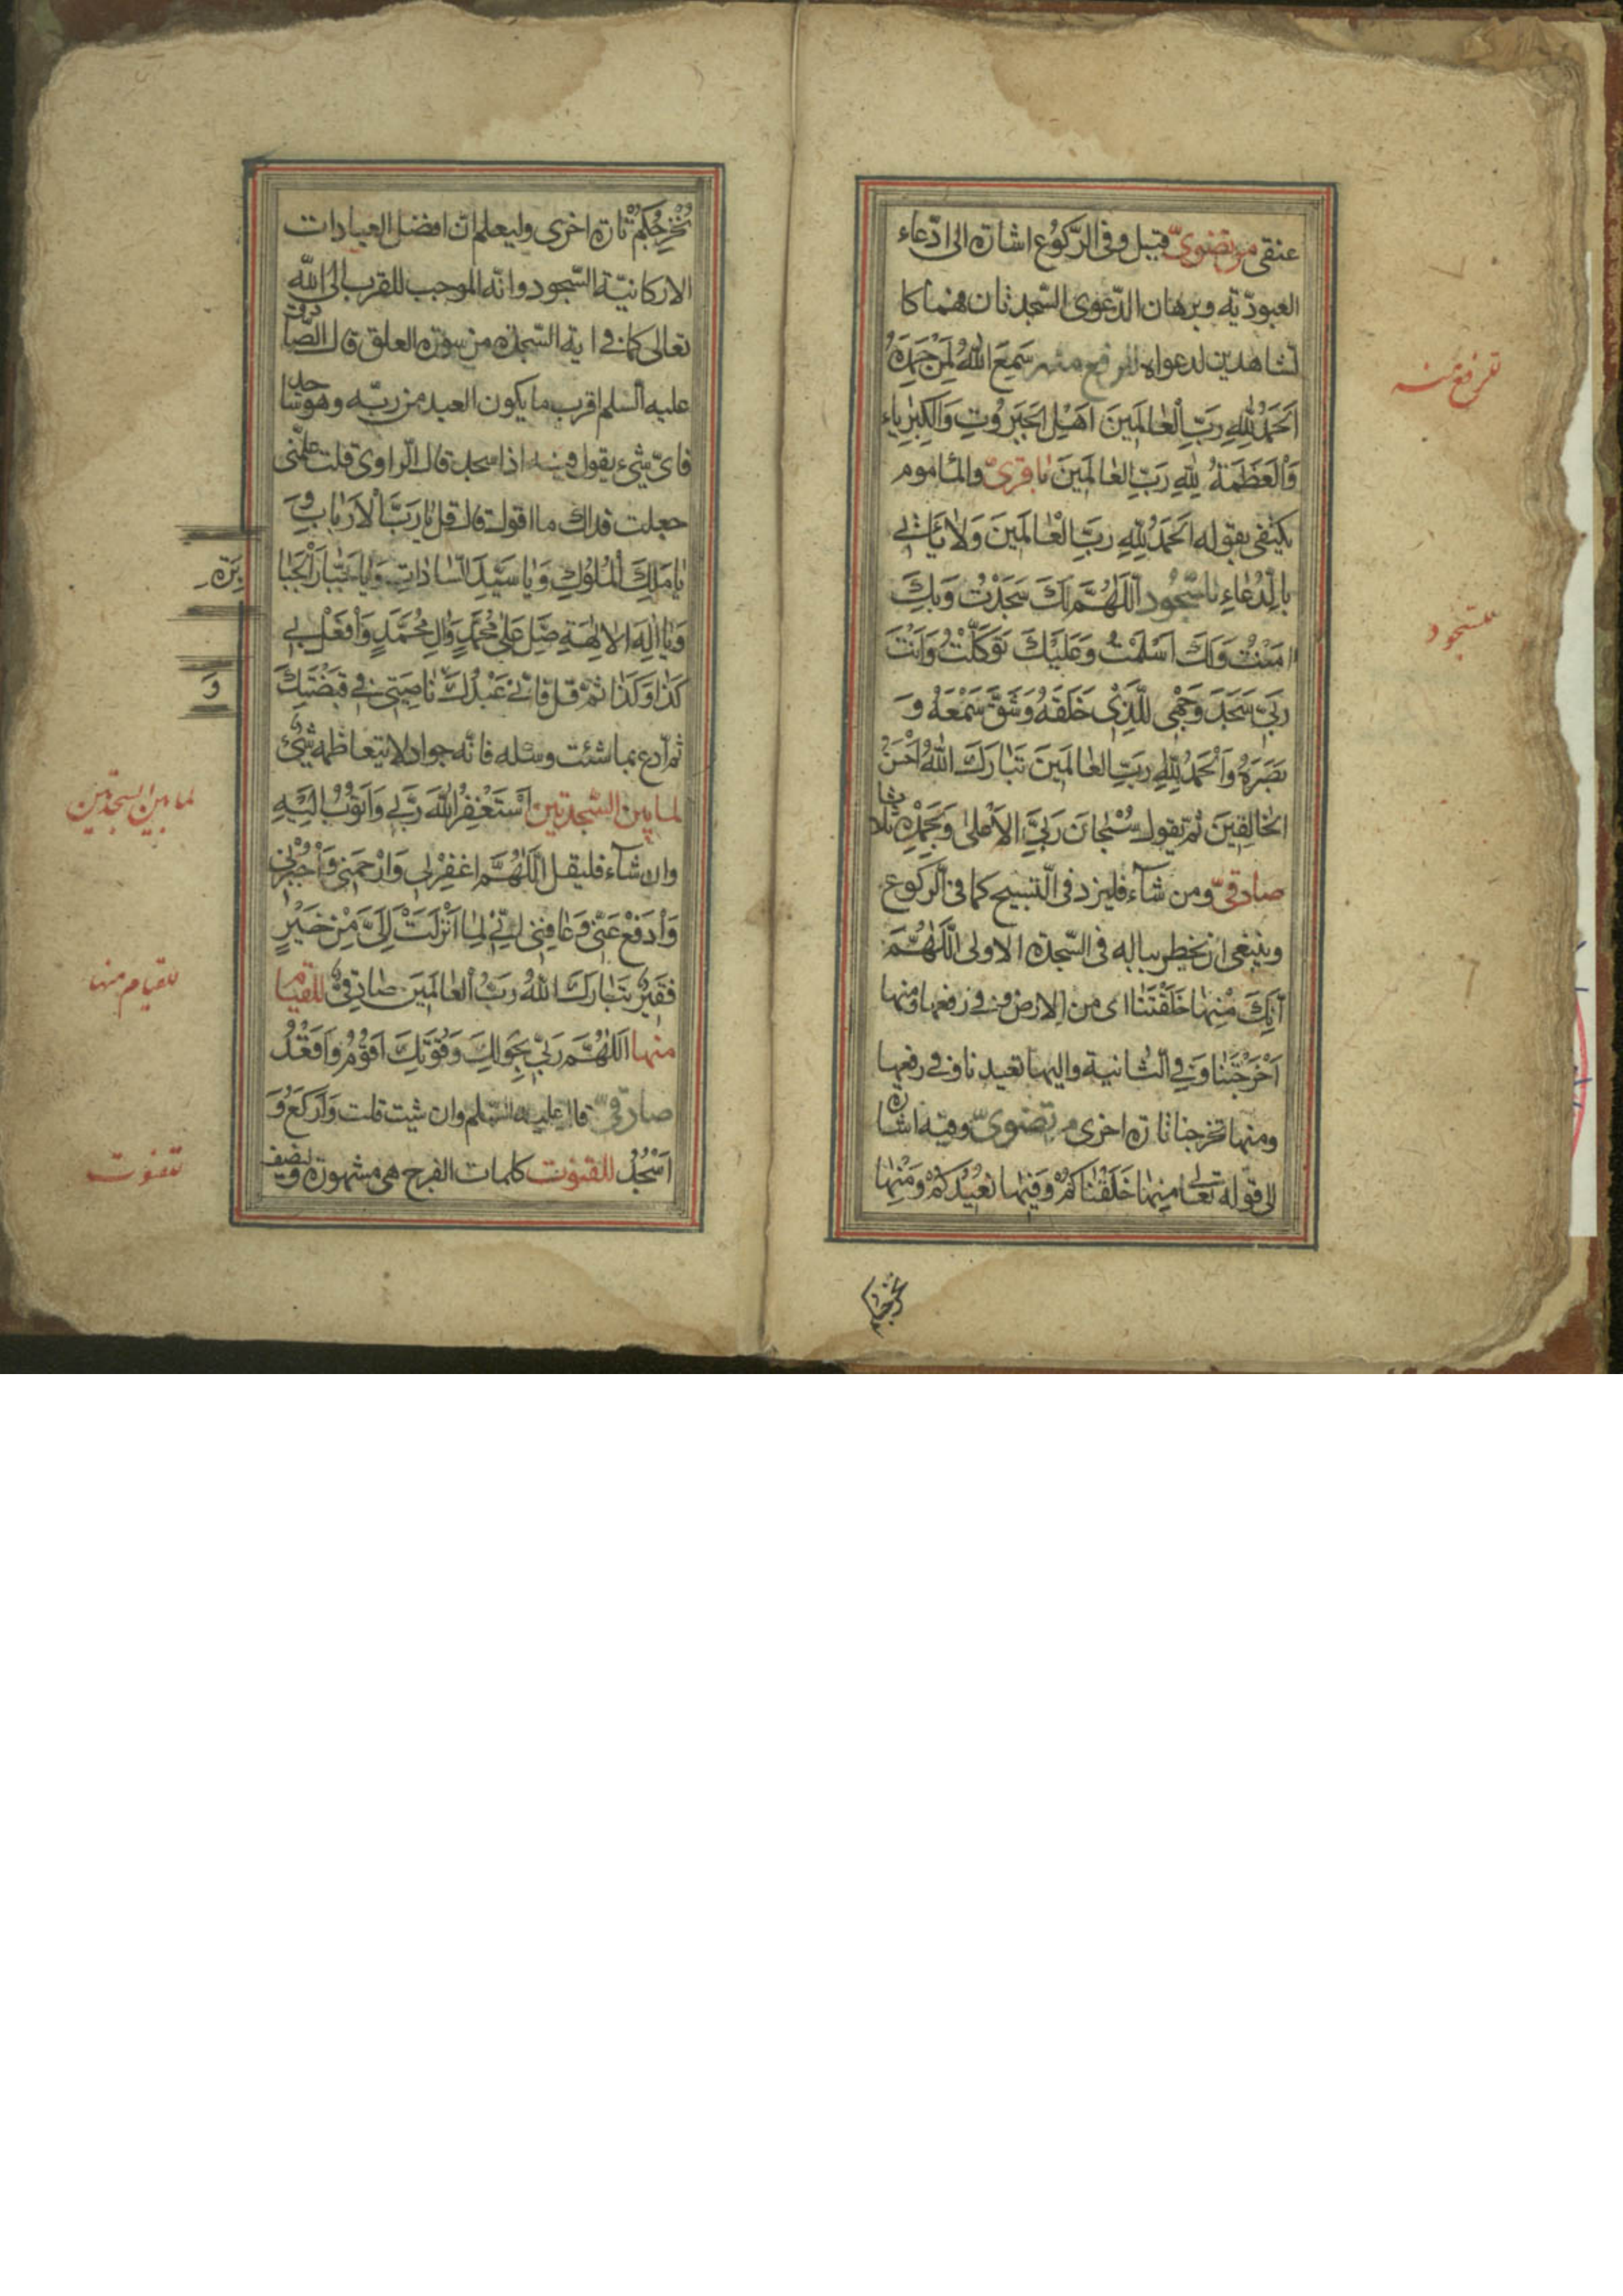 عنقى مرتضوىّ قيل و فى الرّكوع اشارة الى ادّعاء
العبوديّة و برهان الدّعوى السّجدتان فهما كا
لشاهدين لدعواه للرفع منه سَمِعَ اللهُ لِمَنْ حَمِدَهُ
اَلحَمْدُ لِلّٰهِ رَبِّ الْعٰالَمينَ اَهْلِ الجَبَرُوتِ وَالكِبْرِيٰاءِ
وَالْعَظَمَةُ لِلّٰهِ رَبِّ العٰالَمينَ باقرىّ والمأموم
يكتفى بقوله اَلحَمْدُ لِلّٰهِ رَبِّ الْعٰالَمينَ وَلٰا يَأتى
بالدُّعٰاءِ للسّجُود اَللّٰهُمَّ لَكَ سَجَدْتُ وَبِكَ
امَنْتُ وَلَكَ اَسْلَمْتُ وَعَلَيْكَ تَوَكَّلْتُ وَاَنْتَ
رَبّى سَجَدَ وَجْهى لِلَّذى خَلَقَهُ وَشَقَّ سَمْعَهُ وَ
بَصَرَهُ وَالْحَمْدُ لِلّٰهِ رَبِّ العٰالَمينَ تَبٰارَكَ اللهُ اَحْسَنُ
الخٰالِقينَ ثم تقول سُبْحٰانَ رَبِّىَ الاَعْلىٰ وَبِحَمْدِهِ ثلاثا
صادقىّ ومن شآء فليزد فى التّسبيح كما فى الرّكوع
وينبغى ان يخطر بباله فى السّجدة الاولى اللّٰهُمَّ
اِنَّكَ مِنْهٰا خَلَقْتَنٰا اى من الارض و فى رفعها و منها
اَخْرَجْتَنٰا وَفى الثّانية واليها تعيدنا وفى رفعها
ومنها تخرجنا تارة اخرى مرتضوىّ وفيه اشارة
الى قوله تعالى مِنهٰا خَلَقْنٰاكُمْ وَفيهٰا نُعيدُكُمْ وَمِنْهٰا
نخرجكم
للرفع منه
للسّجود
نُخْرِجُكُمْ تارة اخرى وليعلم انّ افضل العبادات
الاركانيّة السّجود وانّه الموجب للقرب الى الله
تعالى كما فى اية السّجدة من سورة العلق قال الصّادق
عليه السّلم اقرب ما يكون العبد من ربّه وهو ساجد
فاىّ شىء يقول فيه اذا سجد قال الرّاوى قلت علّمنى
جعلت فداك ما اقول قال قل يٰا رَبَّ الْاَرْبٰابِ وَ
يٰا مَلِكَ الْمُلُوكِ وَيٰا سَيِّدَ السّٰادٰاتِ وَيٰا جَبّٰارَ الْجَبٰا
بِرَةِ
وَيٰا اِلٰهَ الالِهَةِ صَلِّ عَلىٰ مُحَمَّدٍ وَالِ مُحَمَّدٍ وَافْعَلْ بى
كَذٰا وَكَذٰا ثمّ قل فَاِنّى عَبْدُكَ نٰاصِيَتى فى قَبْضَتِكَ
وَ
ثمّ ادع بما شئت وسئله فانّه جواد لا يتعاظمه شىء
لما بين السّجدتين اَسْتَغْفِرُ اللهَ رَبّى وَاَتُوبُ اِلَيْهِ
وان شآء فليقل اَللّٰهُمَّ اغْفِرْلى وَارْحَمْنى وَاجْبُرْنى
وَادْفَعْ عَنّى وَعٰافِنى اِنّى لِمٰا اَنْزَلْتَ اِلَىَّ مِنْ خَيْرٍ
فَقيرٌ تَبٰارَكَ اللهُ رَبُّ العٰالَمينَ صادقىّ للقيام
منها اَللّٰهُمَّ رَبّى بِحَوْلِكَ وَقُوَّتِكَ اَقُوْمُ وَاَقْعُدُ
صادقىّ قال عليه السّلم وان شئت قلت وَاَرْكَعُ وَ
اَسْجُدُ للقنوت كلمات الفرج هى مشهورة ويضيف
لما بين السجدتين
للقيام منها
للقنوت